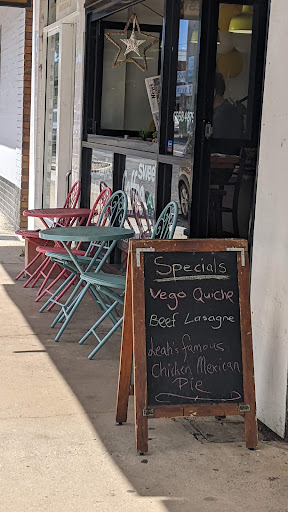 Specials
Vego Quiche
Beef Lasagne
Leah's famous
Chicken Mexican
Pie